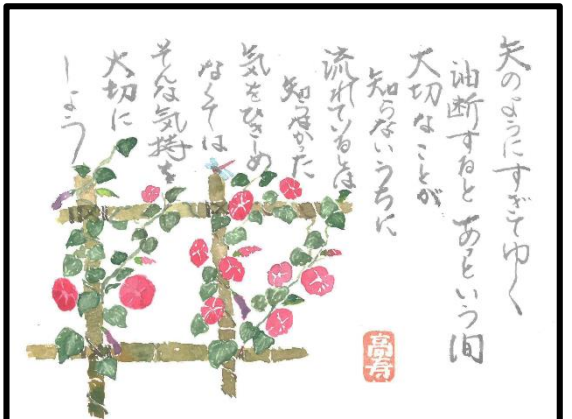 矢のようにすぎてゆく
油断すると あっという間
大切なことが
知らないうちに
流れているとは
知らなかった
気をひきしめ
なくては
そんな気持を
大切に
しよう
高寿